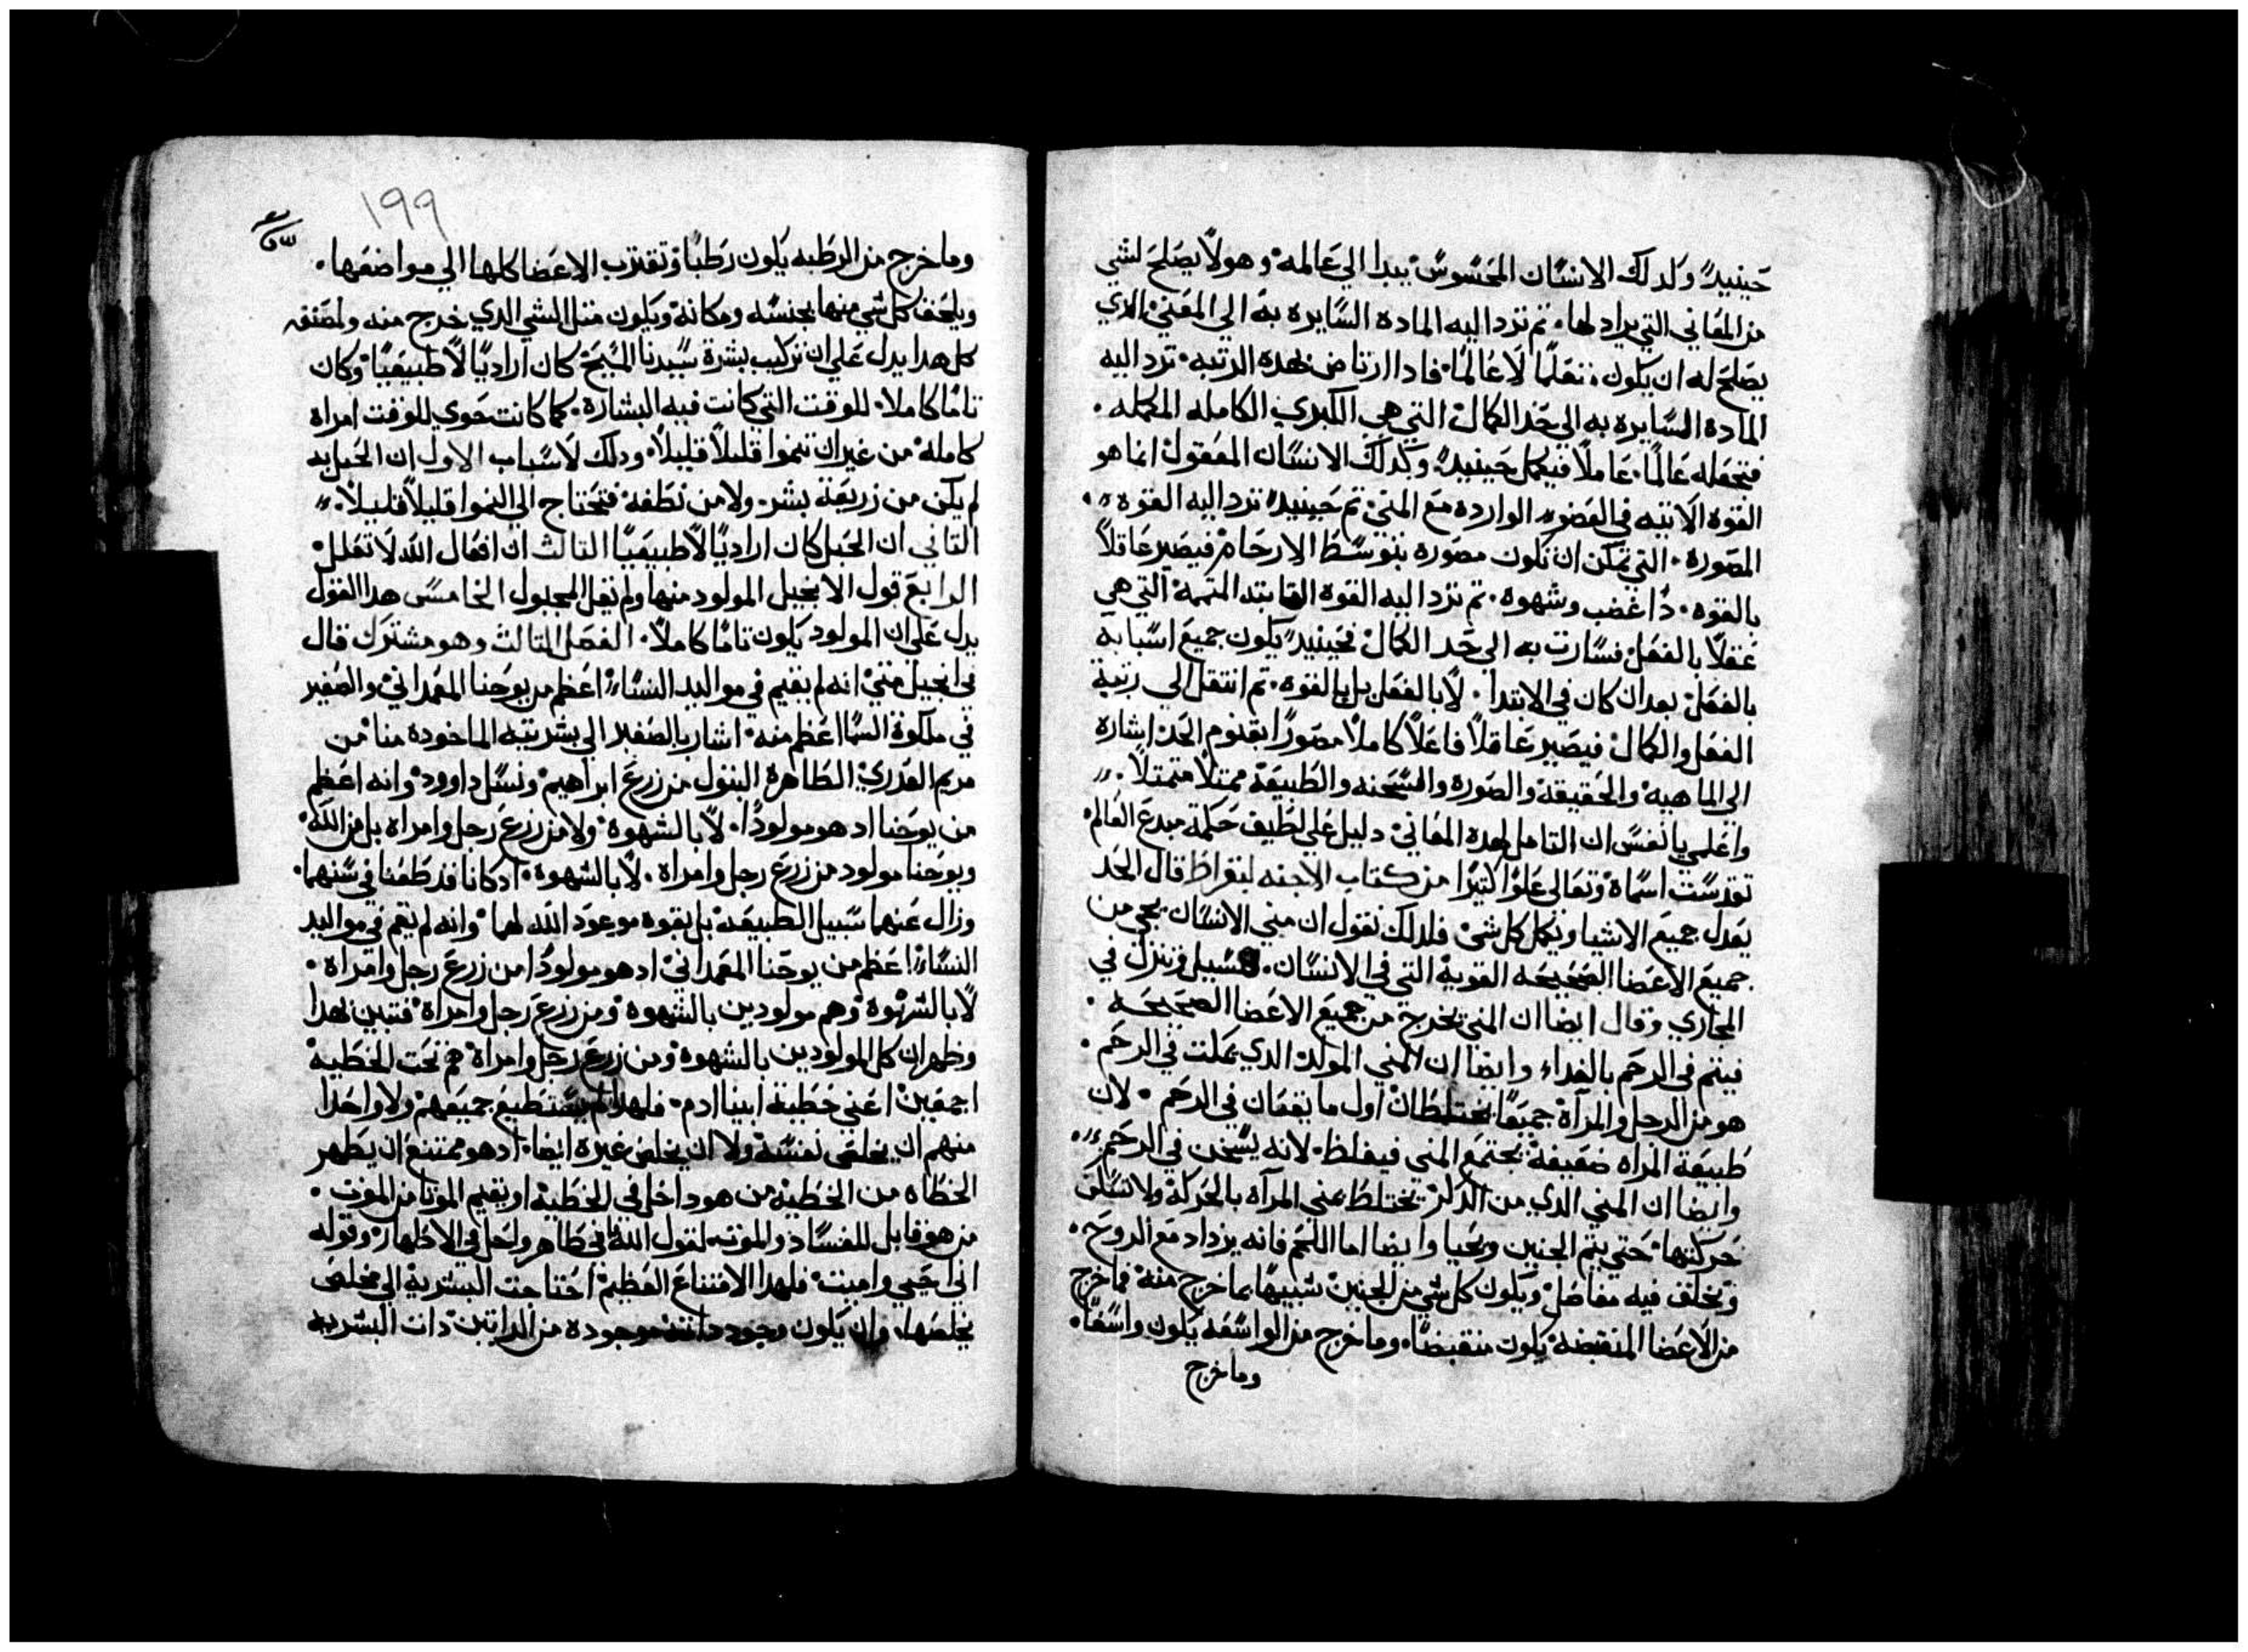 حينيدٍ وكدلك الانسان المحسوس يبدا الي عالمه وهو لا يصلح لشي
من المعاني التي يراد لها. تم تزد اليه الماده السايره به الي المعني الدي
يصلح له ان يكون متعلمًا لا عالمًا. فادا ارتاض بهده الرتبه. تزد اليه
الماده السايره به الي حد الكمال التي هي الكبري الكامله المكمله.
فتجعله عالمًا. عاملًا فيكمل حينيدٍ. وكدلك الانسان المعقول انما هو
القوه الاتيه في العضو الوارده مع المني تم حينيدٍ تزد اليه القوه
المصوره. التي تمكن ان تكون مصوره بتوسط الارحام فيصير عاقلًا
بالقوه. دا غضب وشهوه. تم تزد اليه القوه المتممة التي هي
عقلًا بالفعل فسارت به الي حد الكمال فحينيدٍ يكون جميع اسبابه
بالفعل بعد ان كان في الابتدا. لا بالفعل بل بالقوه. تم انتقل الي رتبة
الفعل والكمال فيصير عاقلًا فاعلًا كاملًا مصورًا بقنوم الحد اشاره
الي الماهية والحقيقة والصوره والسحنه والطبيعة ممتلًا متمتلًا.
واعلمي يا نفس ان التامل لهده المعاني دليل علي لطيف حكمة مبدع العالم.
تقدست اسماه وتعالي علوًا كتيرًا من كتاب الاجنه لبقراط قال الحد
يعدل جميع الاشيا ويكمل كل شي فلدلك نقول ان مني الانسان يجي من
جميع الاعضا الصحيحه القوية التي في الانسان. فيسيل وينزل في
المجاري وقال ايضا ان المني يخرج من جميع الاعضا الصحيحه.
فيتم في الرحم بالغداء وايضا ان المني المولد الدي يملت في الرحم.
هو من الرجل والمرآة جميعًا يختلطان اول ما يقعان في الرحم. لان
طبيعة المراه ضعيفة يجتمع المني فيغلظ. لانه يسخن في الرحم
وايضا ان المني الدي من الدكر يختلط بمني المرآه بالحركة ولا تسكن
حركتها حتي يتم الجنين ويحيا وايضا اما اللحم فانه يزداد مع الروح.
ويخلف فيه مفاصل ويكون كل شي من الجنين شبيهًا بما خرج منه فما خرج
من الاعضا المنقبضه يكون منقبضًا. وما خرج من الواسعه يكون واسعًا.
وما خرج
١٩٩
وما خرج من الرطبه يكون رطبًا وتقترب الاعضا كلها الي مواضعها.
ويلحف كل شي منها بجنسه ومكانه ويكون متل الشي الدي خرج منه
كل هدا يدل علي ان تركيب بشرة سيدنا المسيح كان اراديًا لا طبيعيًا وكان
تامًا كاملا. للوقت التي كانت فيه البشاره. كما كانت حوي للوقت امراه
كامله من غير ان تنموا قليلًا قليلًا. ودلك لاسباب الاول ان الحبل به
لم يكن من زريعة بشر. ولا من نطفه فتحتاج الي النموا قليلًا قليلًا.
التاني ان الحبل كان اراديًا لا طبيعيًا التالث ان افعال الله لا تعلل
الرابع قول الانجيل المولود منها ولم تقل المجلول الخامس هدا القول
يدل علي ان المولود يكون تامًا كاملًا. الفصل التالت وهو مشترك قال
في انجيل متي انه لم يقيم في مواليد النساء اعظم من يوحنا المعمداني والصغير
في ملكوة السما اعظم منه. اشار بالصغير الي بشريته الماخوده منا من
مريم العدري الطاهرة البتول من زرع ابراهيم ونسل داوود وانه اعظم
من يوحنا اد هو مولودًا. لا بالشهوة ولا من زرع رجل وامراه بل من الله.
ويوحنا مولود من زرع رجل وامراه. لا بالشهوة. ادكانا قد طعنا في سنهما.
وزال عنهما سبيل الطبيعة بل بقوه موعود الله لهما وانه لم يقم في مواليد
النساء اعظم من يوحنا المعمداني اد هو مولودًا من زرع رجل وامراه.
لا بالشهوة وهم مولودين بالشهوه ومن زرع رجل وامراه فتبين بهدا
وظهر ان كل المولودين بالشهوه ومن زرع رجل وامراه هم تحت الخطية
اجمعين اعني خطية ابينا ادم. فلهدا لم يستطيع جميعهم ولا واحدا
منهم ان يخلص نفسه ولا ان يخلص غيره ايضا. اد هو ممتنع ان يطهر
الخطاه من الخطية من هو داخل في الخطية او يقيم الموتا من الموت.
من هو قابل للفساد والموت لقول الله اني طاهر واحل في الاطهار وقوله
اني احيي واميت فلهدا الامتناع العظيم احتاجت البشرية الي مخلص
يخلصها. وان يكون وجود موجوده من الداتين دات البشريه